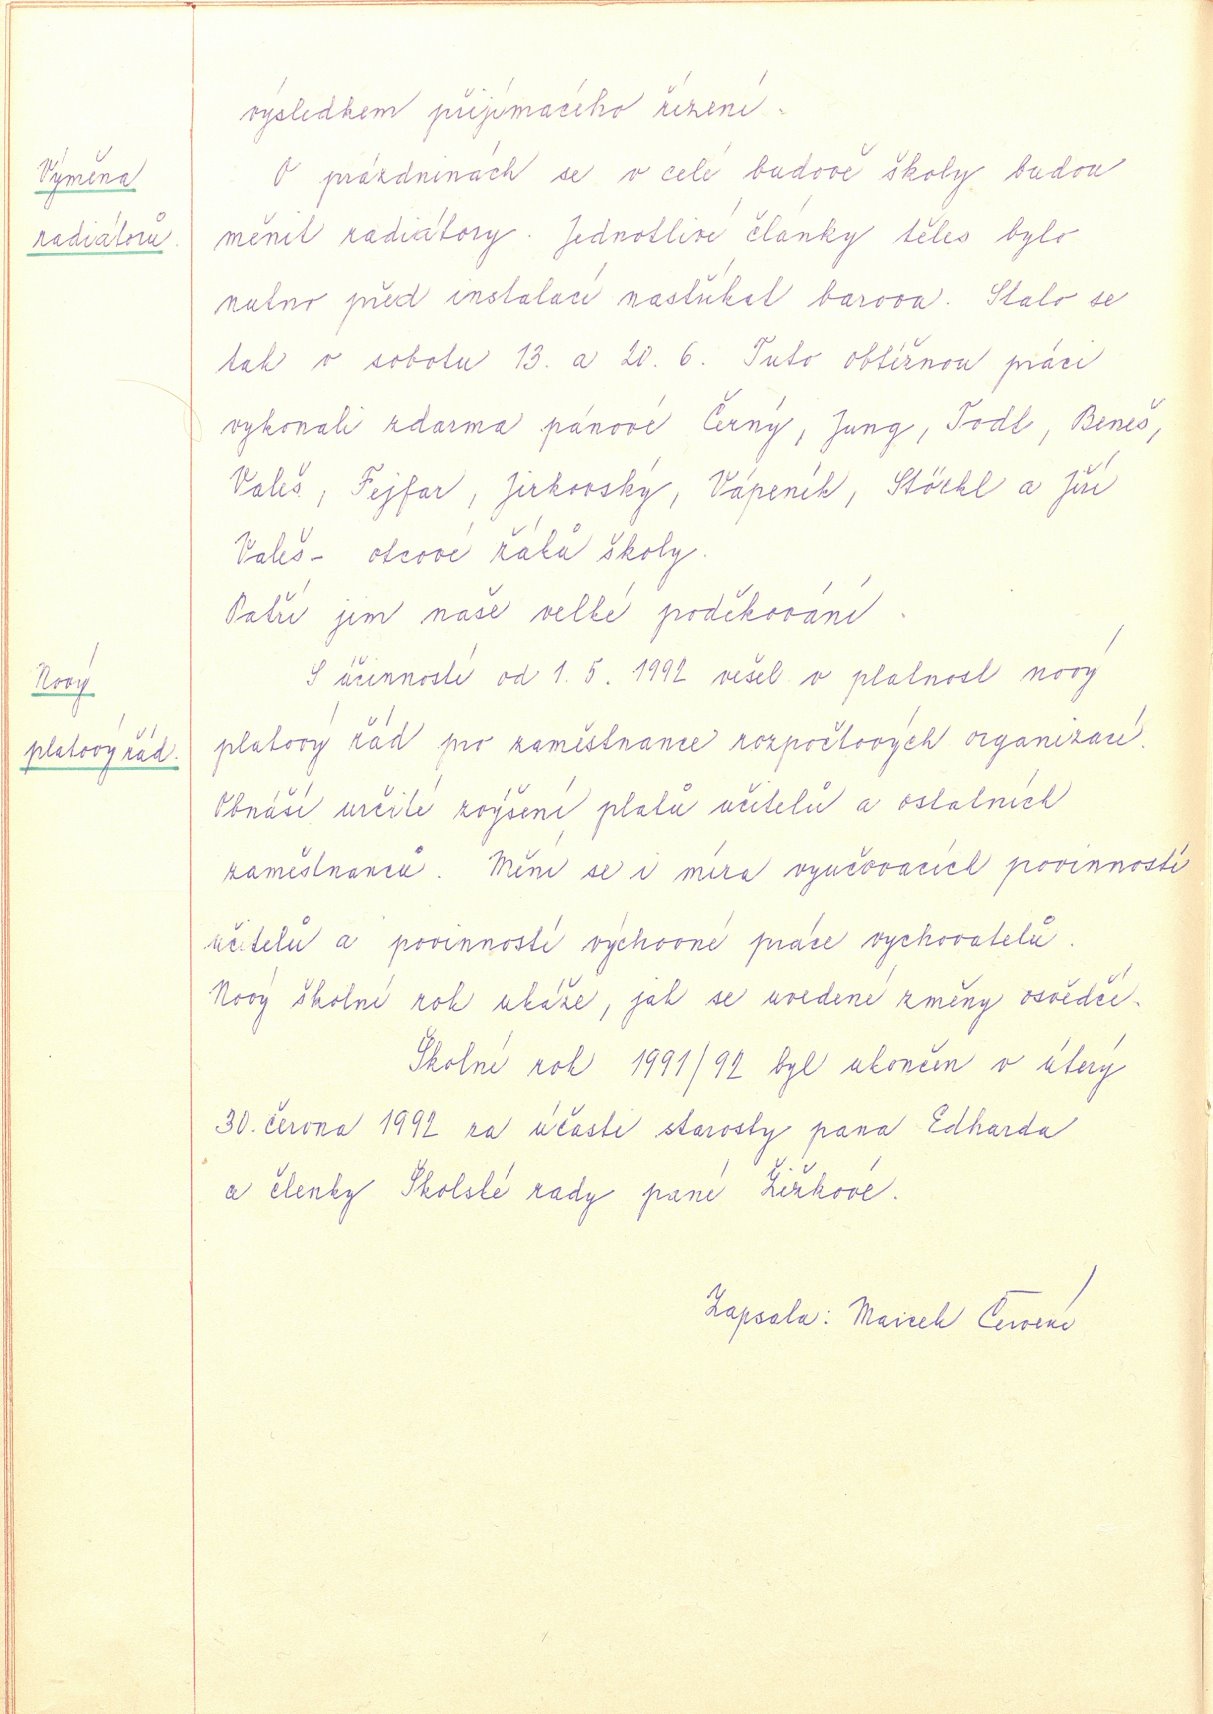 výsledkem přijímacího řízení.
Výměna
radiátorů.
O prázdninách se v celé budově školy budou
měnit radiátory. Jednotlivé články těles bylo
nutno před instalací nastříkat barvou. Stalo se
tak v sobotu 13. a 20. 6. Tuto obtížnou práci
vykonali zdarma pánové Černý, Jung, Todl, Beneš,
Valeš, Fejfar, Jirkovský, Vápeník, Störkl a Jiří
Valeš - otcové žáků školy.
Patří jim naše velké poděkování.
Nový
platový řád.
S účinností od 1. 5. 1992 vešel v platnost nový
platový řád pro zaměstnance rozpočtových organizací.
Obnáší určité zvýšení platů učitelů a ostatních
zaměstnanců. Mění se i míra vyučovacích povinností
učitelů a povinností výchovné práce vychovatelů.
Nový školní rok ukáže, jak se uvedené změny osvědčí.
Školní rok 1991/92 byl ukončen v úterý
30. června 1992 za účasti starosty pana Edharda
a členky Školské rady paní Žižkové.
Zapsala: